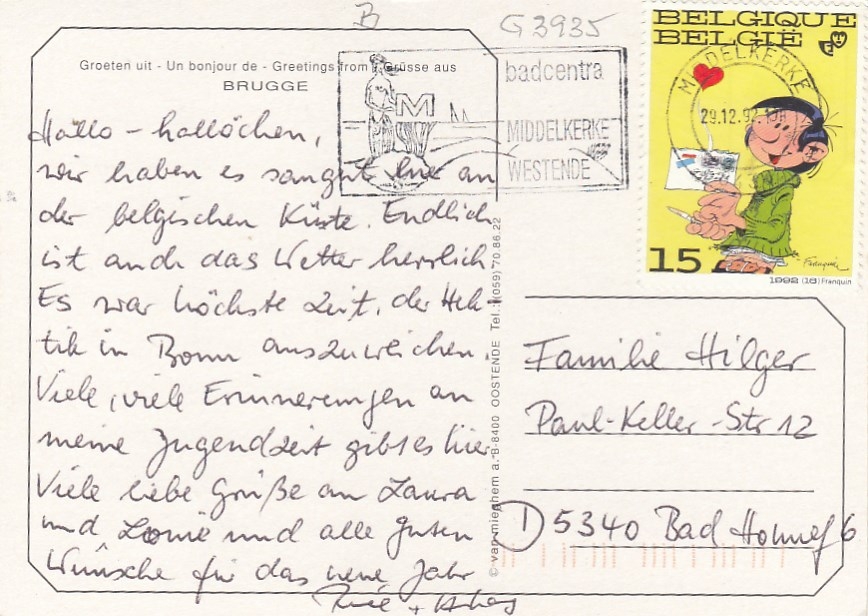 B
G 3935
Groeten uit - Un bonjour de - Greetings from - Grüsse aus
BRUGGE
Hallo - hallöchen,
wir haben es sangut hier an
der belgischen Küste. Endlich
ist auch das Wetter herrlich.
Es war höchste Zeit, der Hek-
tik in Bonn auszuweichen.
Viele, viele Erinnerungen an
meine Jugendzeit gibt es hier
Viele liebe Grüße an Laura
und und alle guten
Wünsche für das neue Jahr
+
© van mieghem a. - B-8400 OOSTENDE Tel.: (059) 70.86.22
M
badcentra
MIDDELKERKE
WESTENDE
BELGIQUE
BELGIË
MIDDELKERKE
29.12.92
15
Franquin
1992 (18) Franquin
Familie Hilger
Paul-Keller-Str 12
D 5340 Bad Honnef 6